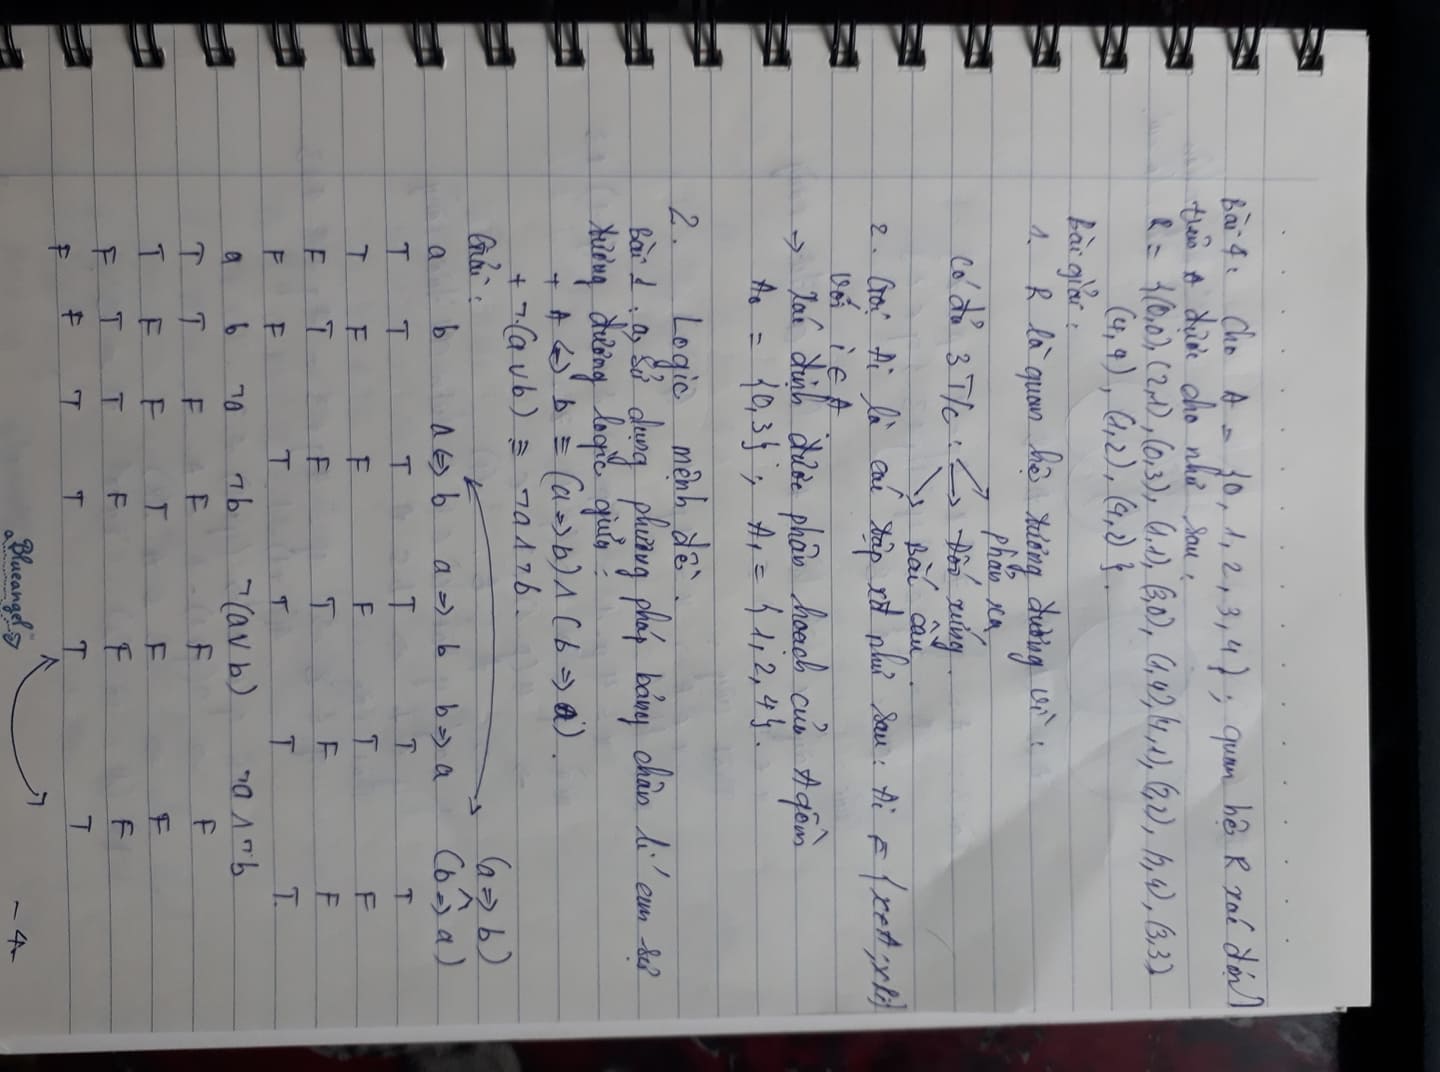 Bài 4: Cho A = {0, 1, 2, 3, 4}, quan hệ R xác định
trên A được cho như sau:
R = {(0,0), (2,1), (0,3), (1,1), (3,0), (1,4), (4,1), (2,2), (2,4), (3,3)
(4,4), (1,2), (4,2)}.
Bài giải:
1. R là quan hệ tương đương vì:
phản xạ
Có đủ 3 T/c: → Đối xứng.
Bắc cầu.
2. Gọi Ai là các tập như sau: Ai = {x∈A; xRi}
với i ∈ A
→ Xác định được phân hoạch của A gồm
A₀ = {0,3}; A₁ = {1,2,4}.
2. Logic mệnh đề.
Bài 1: a, Sử dụng phương pháp bảng chân lí cm sự
tương đương logic giữa:
+ A ⇔ b ≡ (a⇒b) ∧ (b⇒a).
+ ¬(a∨b) ≡ ¬a∧¬b.
Giải: (a⇒b)
a b a⇔b a⇒b b⇒a ∧ (b⇒a)
T T T T T T
T F F F T F
F T F T F F
F F T T T T.
a b ¬a ¬b ¬(a∨b) ¬a∧¬b
T T F F F F
T F F T F F
F T T F F F
F F T T T T
Blueangel
- 4